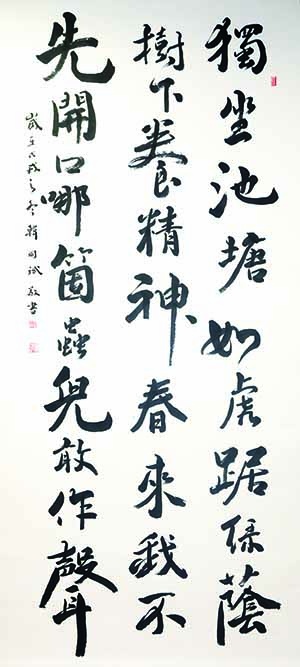 獨坐池塘如虎踞綠蔭
樹下養精神春來我不
先開口哪箇蟲兒敢作聲
歲在戊戌之冬韓敬書